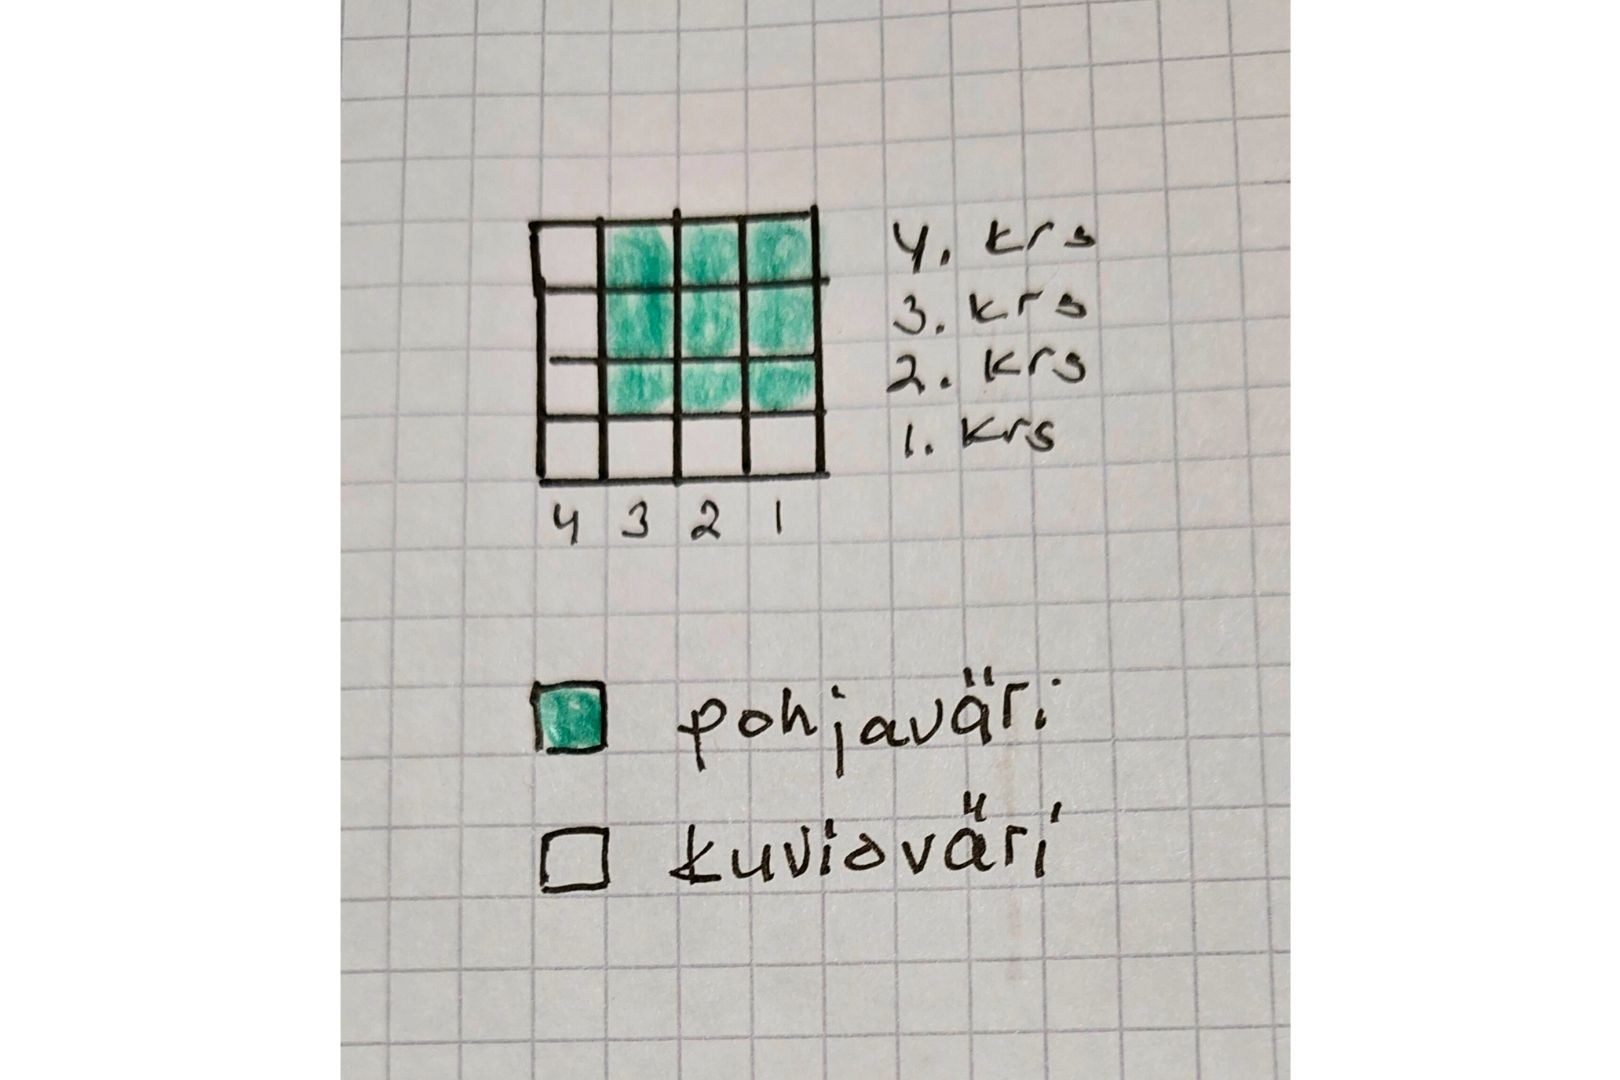 4. krs
3. krs
2. krs
1. krs
4 3 2 1
pohjaväri
kuvioväri